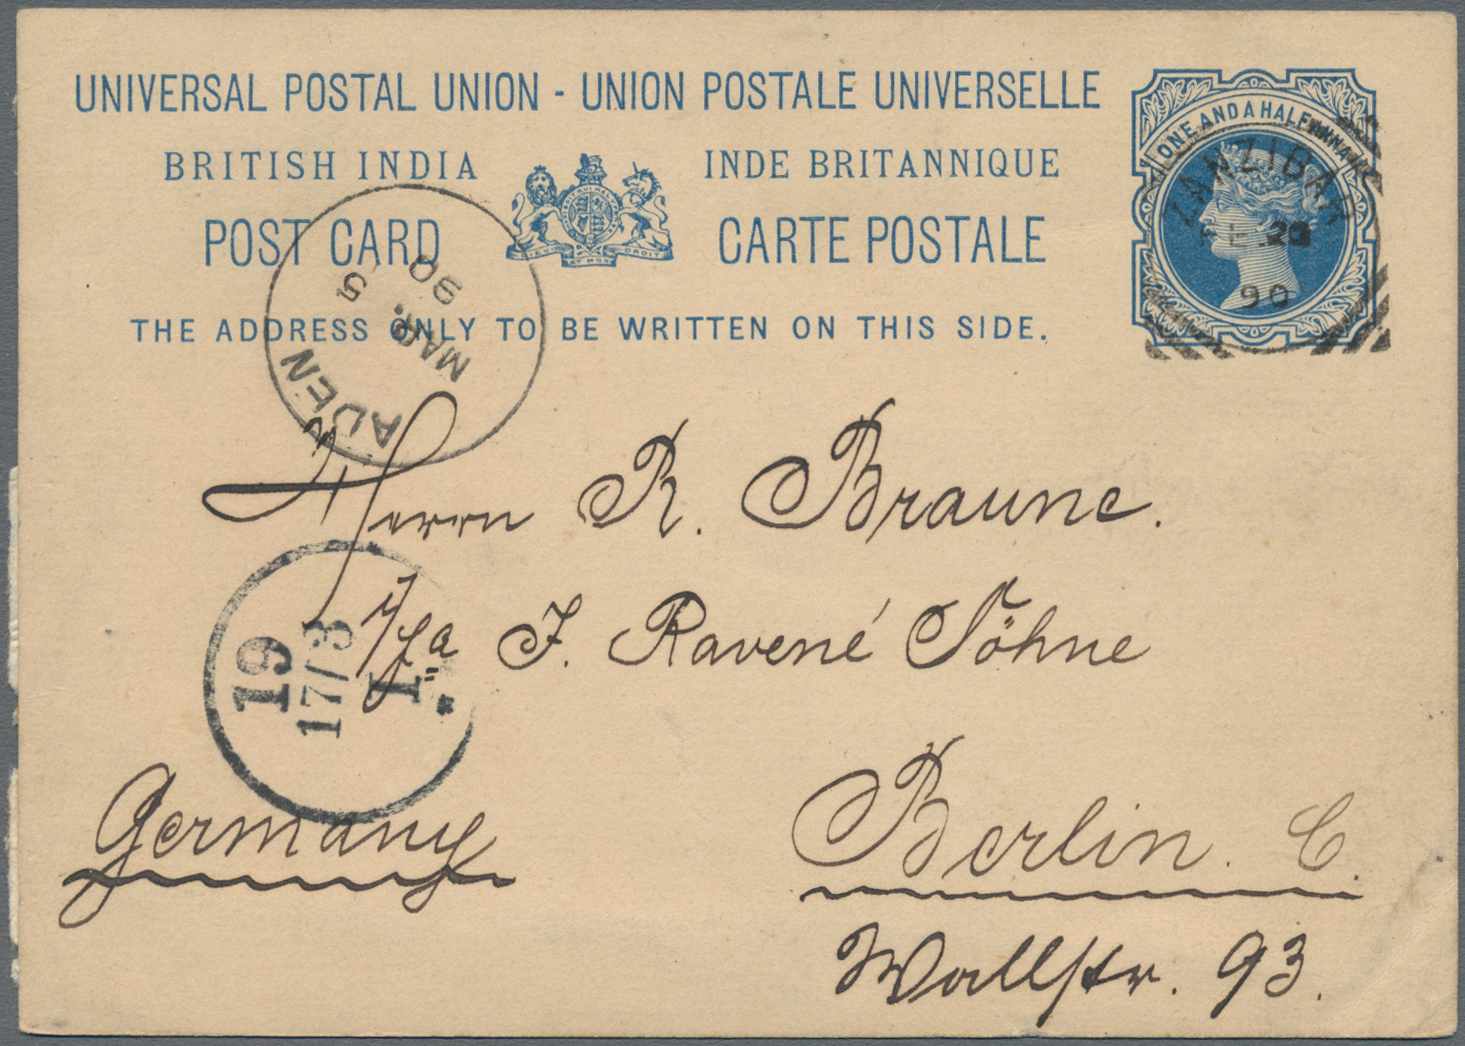 UNIVERSAL POSTAL UNION - UNION POSTALE UNIVERSELLE
BRITISH INDIA INDE BRITANNIQUE
POST CARD CARTE POSTALE
THE ADDRESS ONLY TO BE WRITTEN ON THIS SIDE.
ONE AND A HALF ANNA
ZANZIBAR
90
ADEN
MAR. 5
90
DIEU ET MON DROIT
Herrn R. Braune.
J. Ravené Söhne
19
17/3
1
Germany
Berlin. C.
Wallstr. 93.